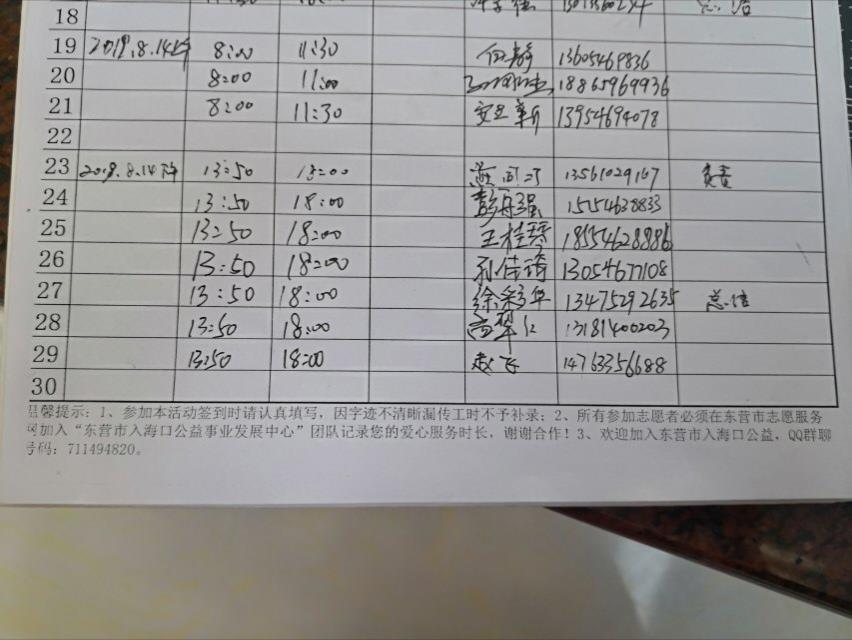 18
19 2019.8.14上午 8:00 11:30 13605469836
20 8:00 11:00 18865969936
21 8:00 11:30 13954694078
22
23 2019.8.14下午 13:50 18:00 13561029167 负责
24 13:50 18:00 彭丹强 15154638833
25 13:50 18:00 王桂琴 18554628886
26 13:50 18:00 孙佳琦 13054677108
27 13:50 18:00 徐彩华 13475292635 总结
28 13:50 18:00 高翠红 13181400203
29 13:50 18:00 赵飞 14763356688
30
温馨提示：1、参加本活动签到时请认真填写，因字迹不清晰漏传工时不予补录；2、所有参加志愿者必须在东营市志愿服务
网加入“东营市入海口公益事业发展中心”团队记录您的爱心服务时长，谢谢合作！3、欢迎加入东营市入海口公益，QQ群聊
号码：711494820。